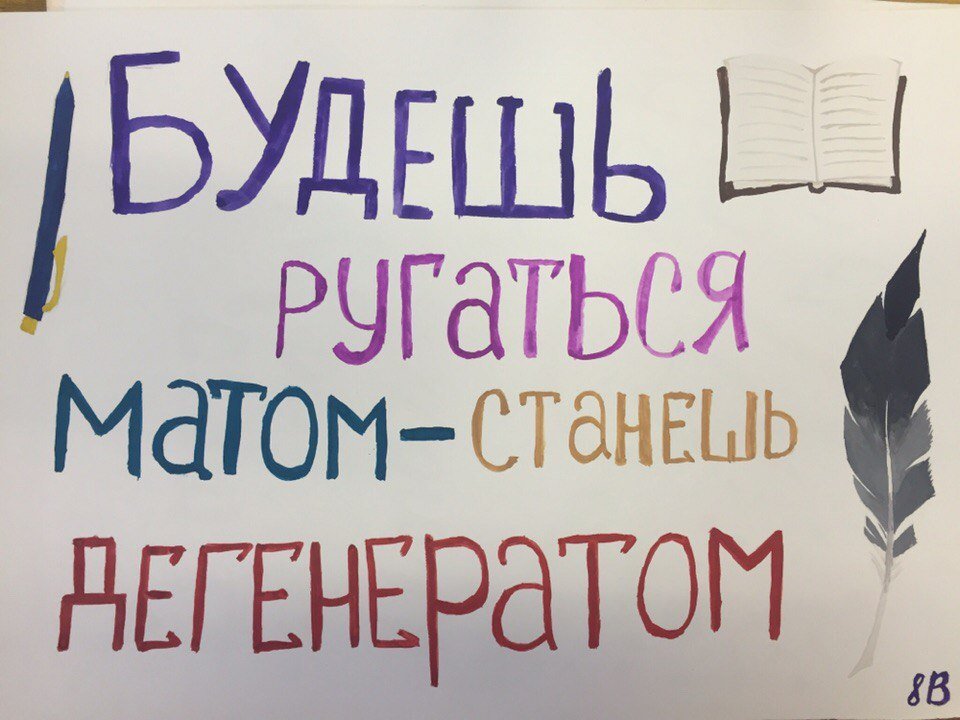 БУДЕШЬ
РУГАТЬСЯ
МАТОМ - СТАНЕШЬ
ДЕГЕНЕРАТОМ
8В